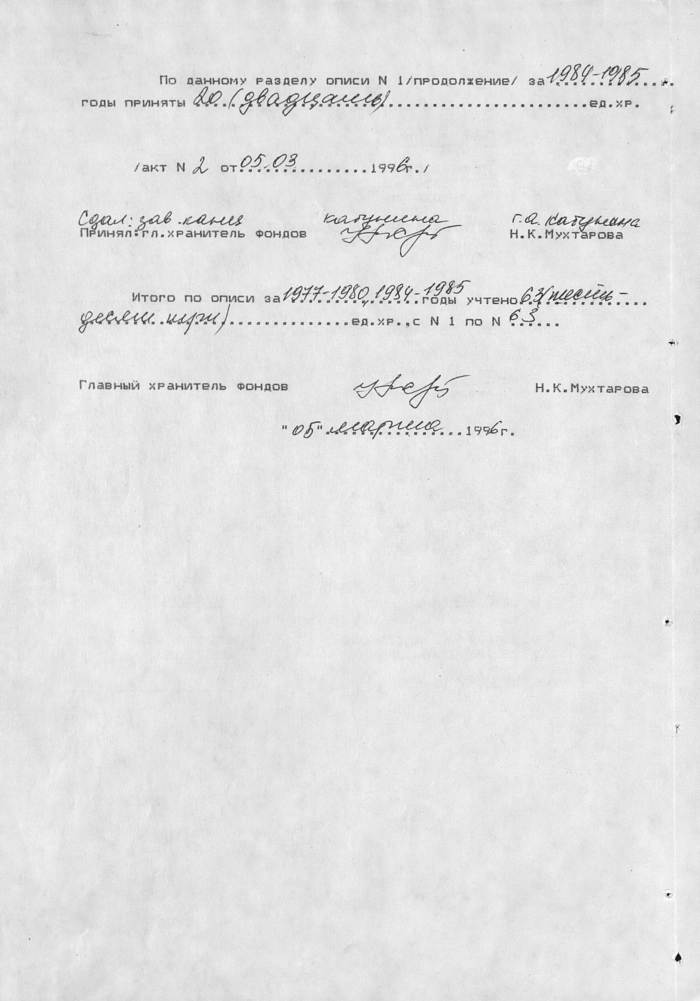 По данному разделу описи N 1/продолжение/ за 1984-1985
годы приняты 20 (двадцать) ед.хр.
/акт N 2 от 05.03 1996г./
Сдал: зав. канц Г.А. Катунина
Принял:гл.хранитель фондов Н.К.Мухтарова
Итого по описи за 1977-1980, 1984-1985 годы учтено 63 (шесть-
десят три) ед.хр.,с N 1 по N 63
Главный хранитель фондов Н.К.Мухтарова
"05" марта 1996г.